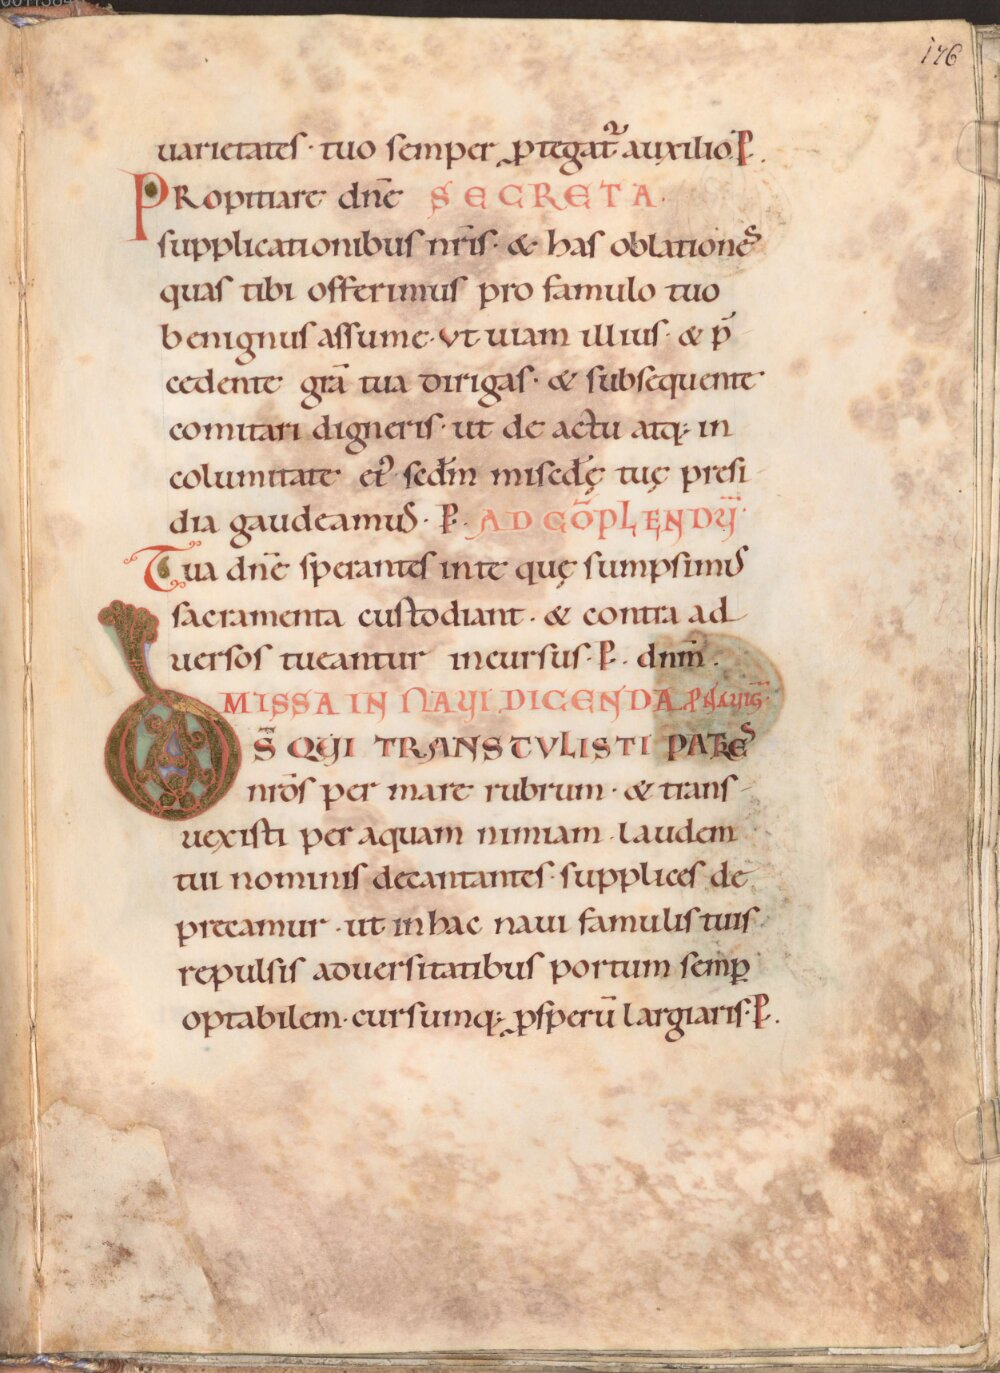 176
uarietates · tuo semper ꝓtegat᷑ auxilio · P̱.
PRopitiare dnē SECRETA.
supplicationibus nr̄is · & has oblationes
quas tibi offerimus pro famulo tuo
benignus assume · ut uiam illius · & p̄
cedente grā tua dirigas · & subsequente
comitari digneris · ut de actu atq; in
columitate ei᷒ · sed̄m mised̄ę tuę presi
dia gaudeamus · P̱. AD CŌPLENDŪ
Tua dnē sperantes inte quę sumpsimus
sacramenta custodiant · & contra ad
uersos tueantur incursus · P̱. dnm̄.
MISSA IN NAUI DICENDA
DS̄ QUI TRANSTVLISTI PATRES
nr̄os per mare rubrum · & trans
uexisti per aquam nimiam · laudem
tui nominis decantantes · supplices de
precamur · ut inhac naui famulis tuis
repulsis aduersitatibus portum semꝑ
optabilem · cursumq; ꝓsperū largiaris · P̱.